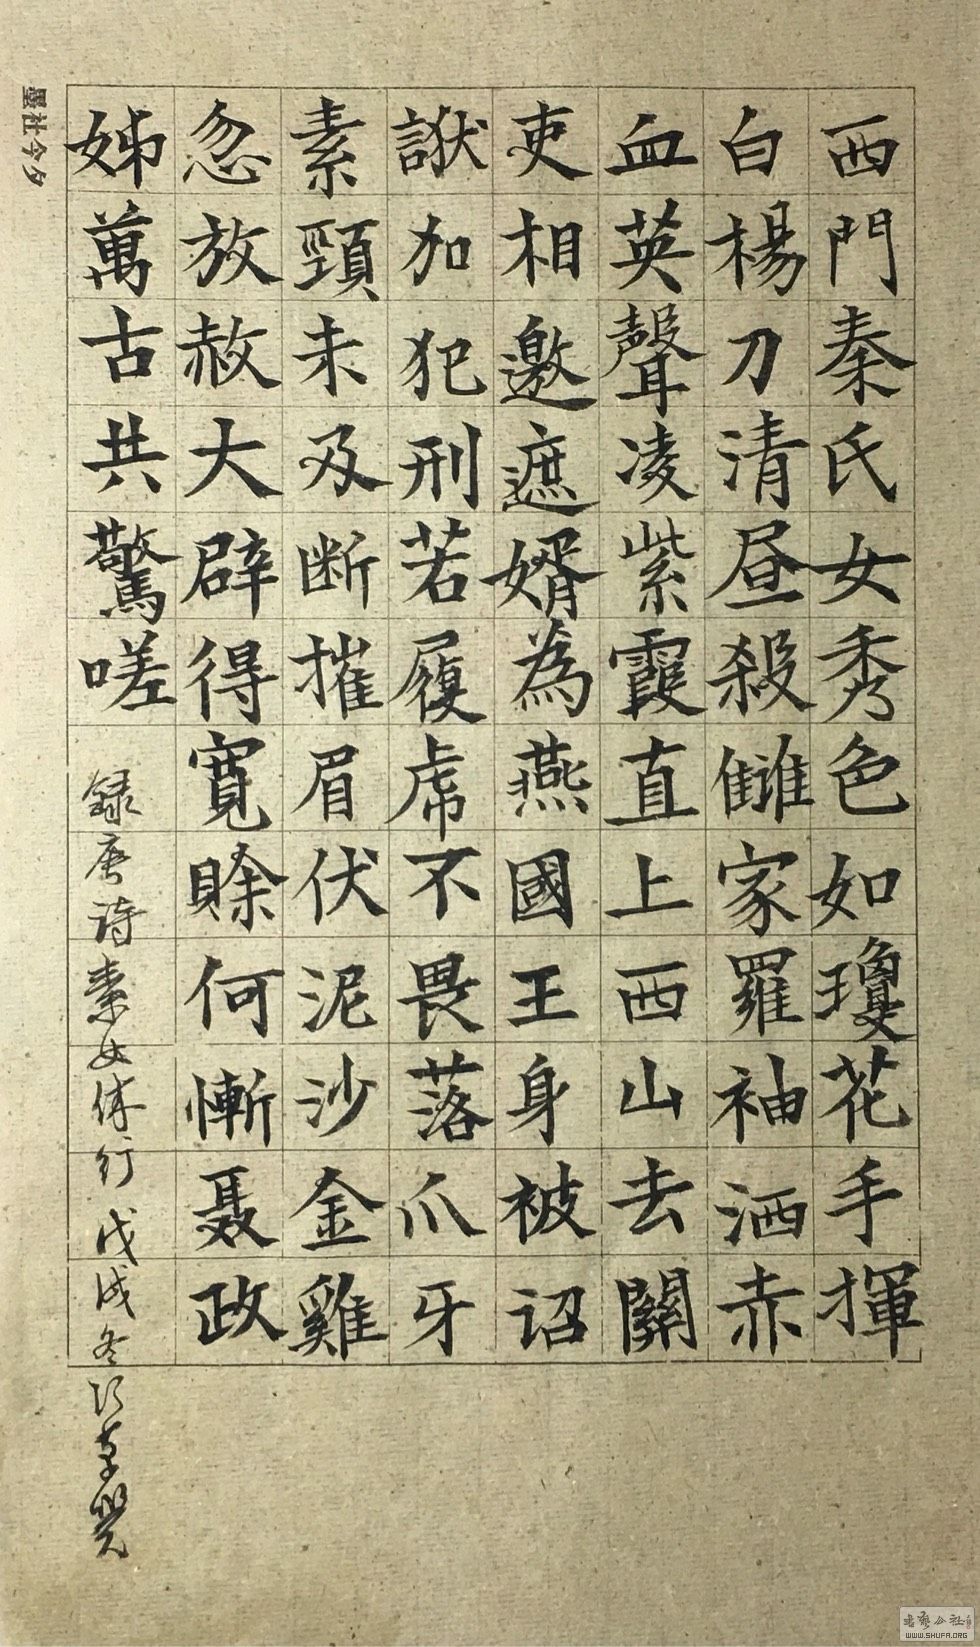 西門秦氏女秀色如瓊花手揮
白楊刀清昼殺讎家羅袖洒赤
血英聲凌紫霞直上西山去關
吏相邀遮婿為燕國王身被诏
獄加犯刑若履虎不畏落爪牙
素頸未及断摧眉伏泥沙金雞
忽放赦大辟得寬賒何慚聂政
姊萬古共驚嗟
録唐诗秦女休行戊戌冬
墨社今夕
WWW.SHUFA.ORG